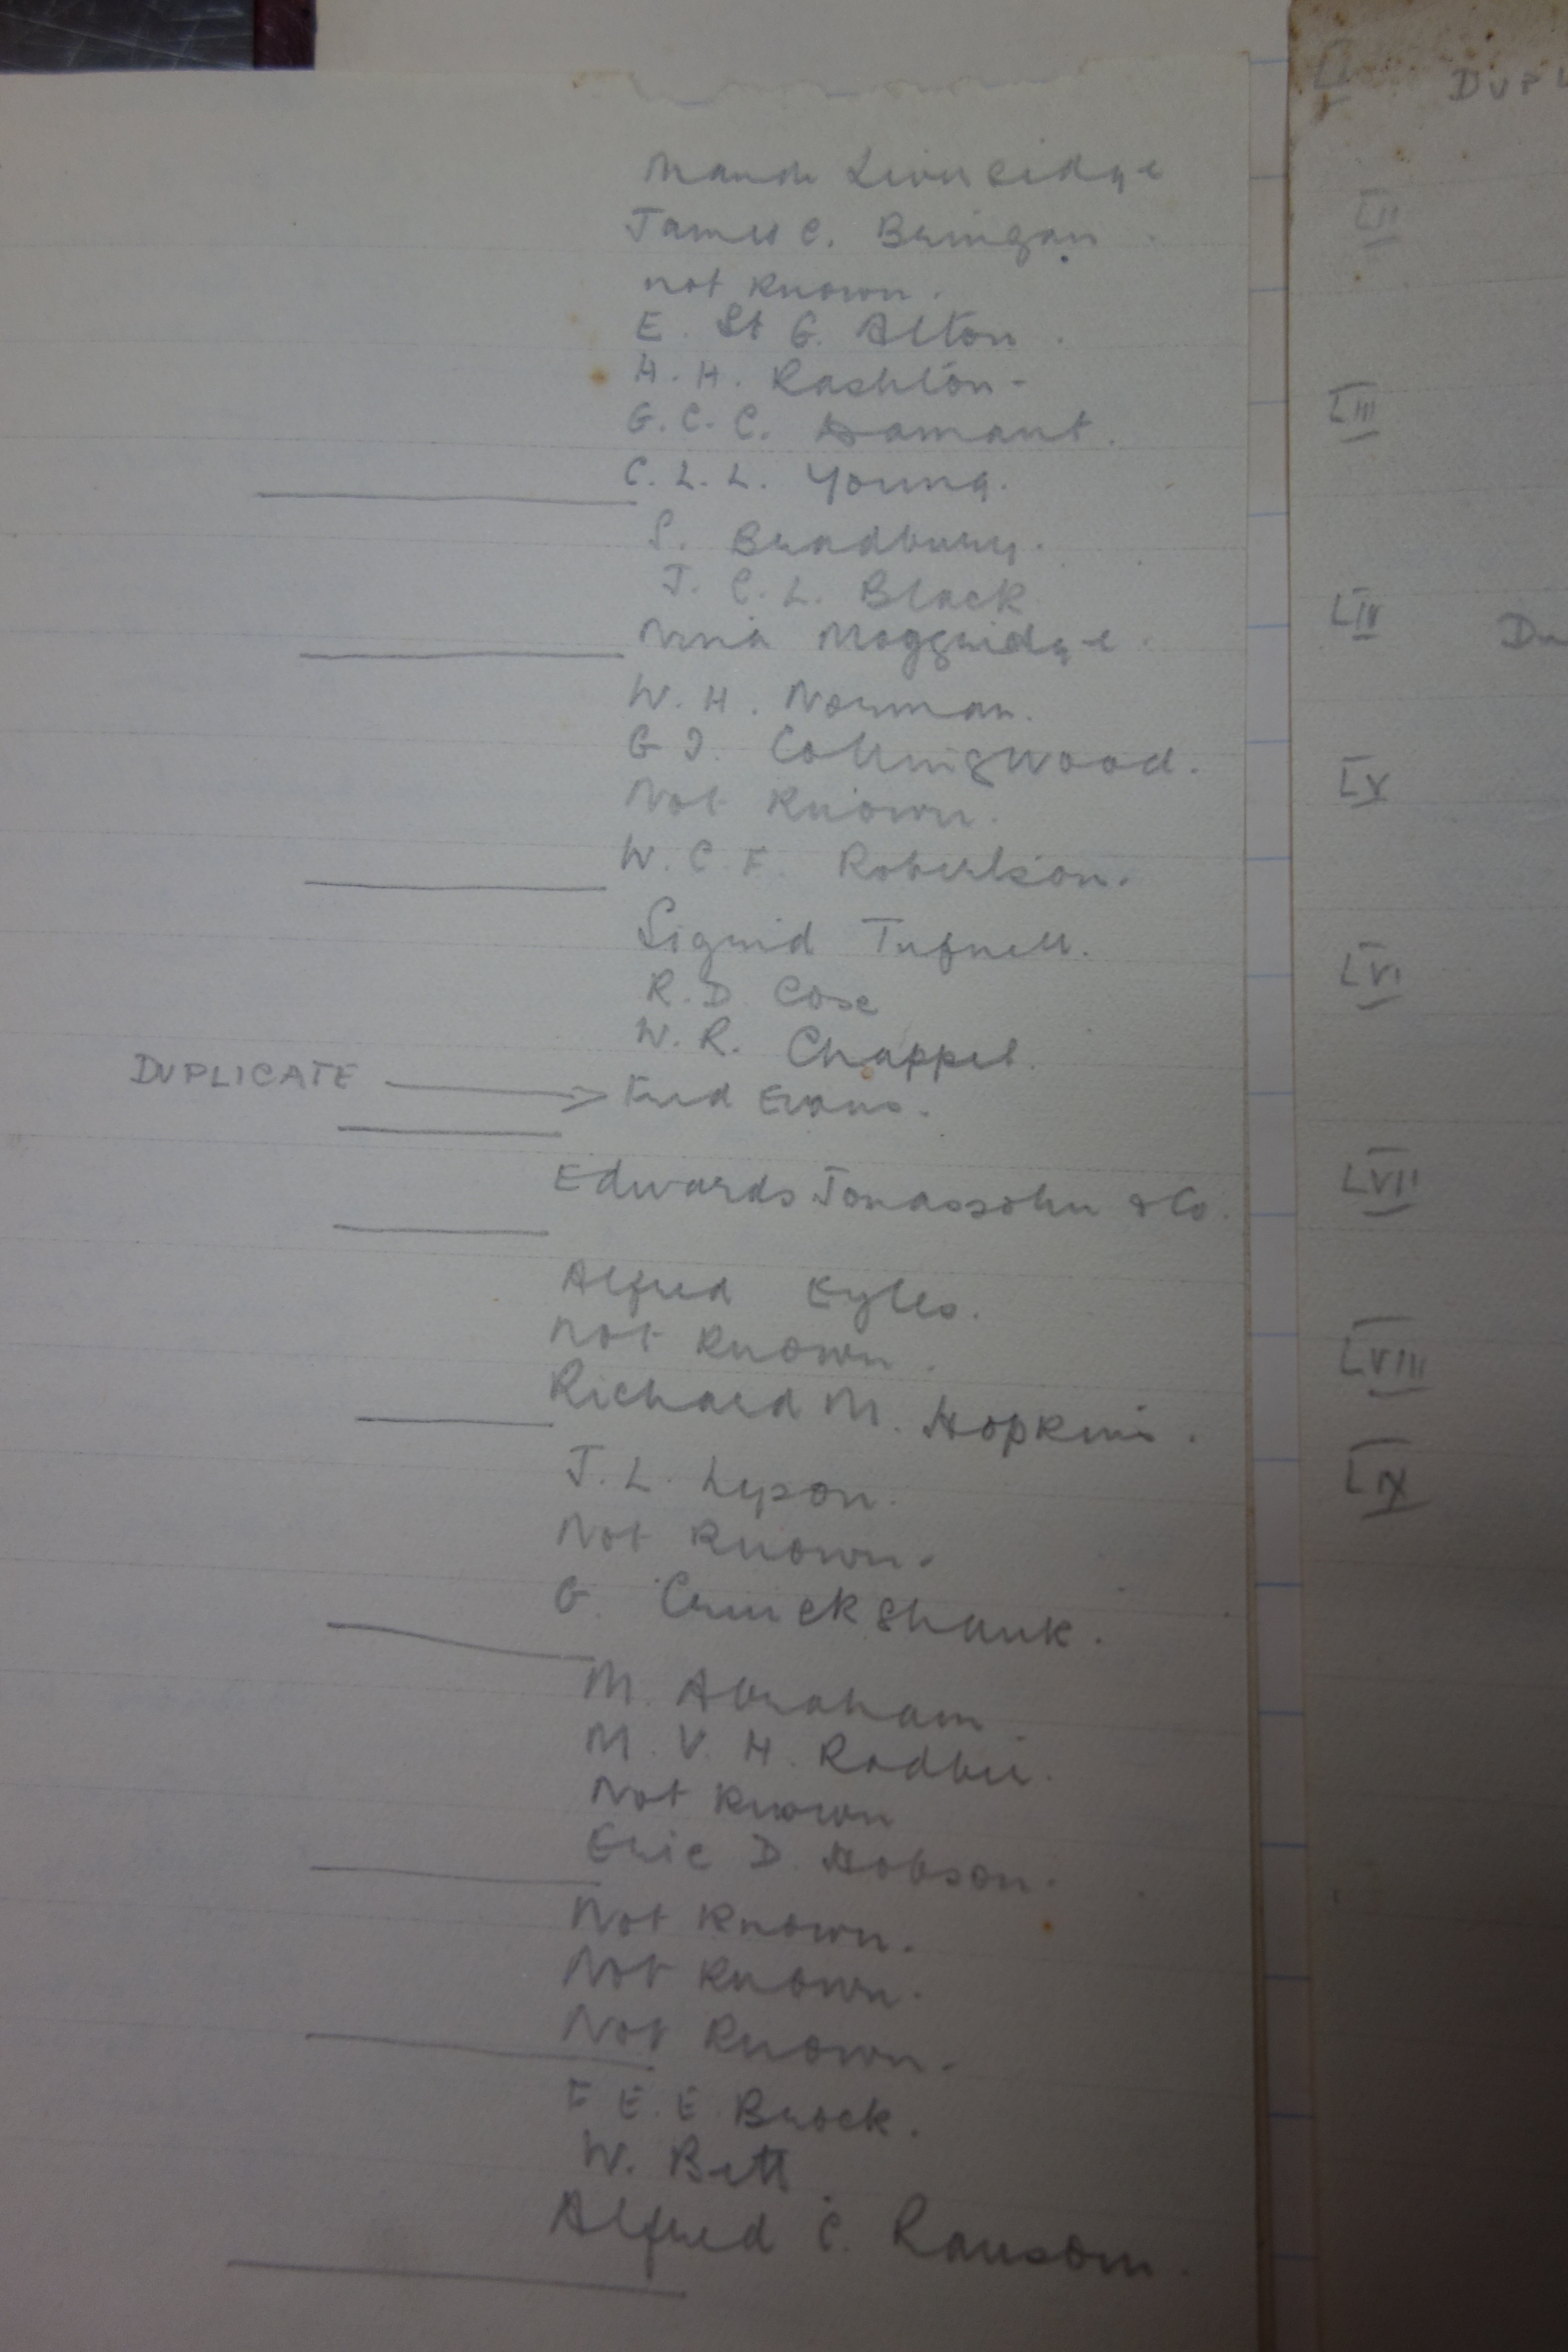 Maude Liverseidge
James C. Bringan
not known.
E. St G. Alton.
H. H. Rashton-
G. C. C. Damant.
C. L. L. Young.
S. Bradbury.
J. C. L. Black
Nina Moggridge.
W. H. Norman.
G I. Collingwood.
Not Known.
W. C F. Robertson.
Sigrid Tufnell.
R. D. Cose
W. R. Chappel.
DUPLICATE → Fred Evans.
Edwards Jonassohn & Co.
Alfred Eyles.
Not Known.
Richard M. Hopkins.
J. L. Lyson.
Not Known.
G. Cruickshank.
M. Abraham.
M. V. H. Radbir.
Not Known
Eric D. Hobson.
Not Known.
Not Known.
Not Known.
F E. E. Brock.
W. Bett.
Alfred C. Ransom.
LI DUPL
LII
LIII
LIV Du
LV
LVI
LVII
LVIII
LIX